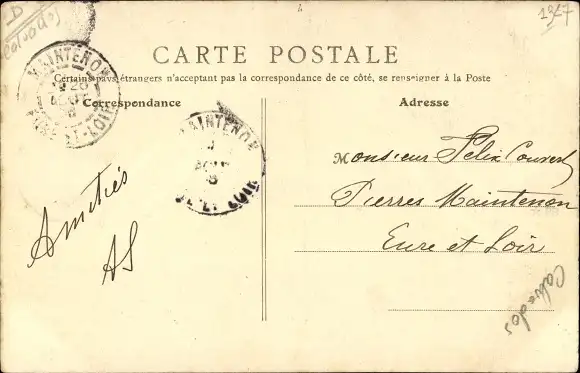 D
Calvados
1347
CARTE POSTALE
Certains pays étrangers n'acceptant pas la correspondance de ce côté, se renseigner à la Poste
Correspondance
Adresse
MAINTENON
EURE-ET-LOIR
MAINTENON
EURE-ET-LOIR
Amitiés
AS
Monsieur Félix Couvert
Pierres Maintenon
Eure et Loir
Calvados